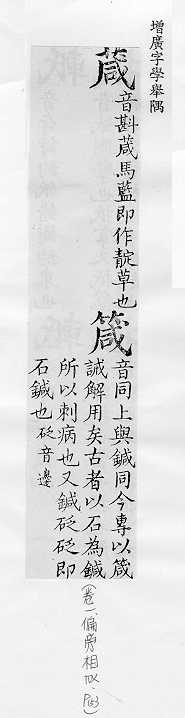 增廣字學舉隅
葴音斟葴馬藍即作靛草也箴音同上與鍼同今專以箴
誡解用矣古者以石為鍼
所以刺病也又鍼砭砭即
石鍼也砭音邊
(卷一、偏旁相似、P63)